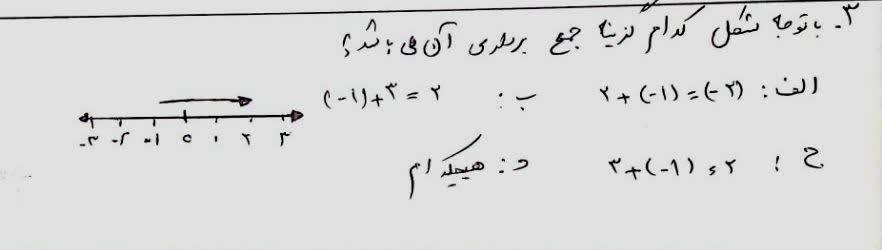 ۳- باتوجه بشکل کدام گزینه جمع برداری آن می باشد؟
الف: ۲+(-۱)=(-۲) ب: (-۱)+۳=۲
-۳ -۲ -۱ ۰ ۱ ۲ ۳
ج: ۳+(-۱)=۲ د: هیچکدام